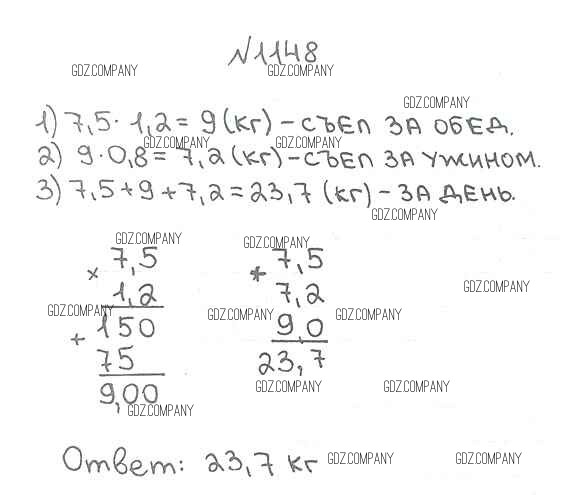 №1148
GDZ.COMPANY GDZ.COMPANY
GDZ.COMPANY
1) 7,5 · 1,2 = 9 (кг) – съел за обед.
GDZ.COMPANY GDZ.COMPANY
2) 9 · 0,8 = 7,2 (кг) – съел за ужином.
3) 7,5 + 9 + 7,2 = 23,7 (кг) – за день.
GDZ.COMPANY
GDZ.COMPANY GDZ.COMPANY
7,5 7,5
× +
1,2 7,2
GDZ.COMPANY
GDZ.COMPANY GDZ.COMPANY GDZ.COMPANY
150 9,0
+
75 23,7
GDZ.COMPANY GDZ.COMPANY
9,00
GDZ.COMPANY
Ответ: 23,7 кг
GDZ.COMPANY GDZ.COMPANY